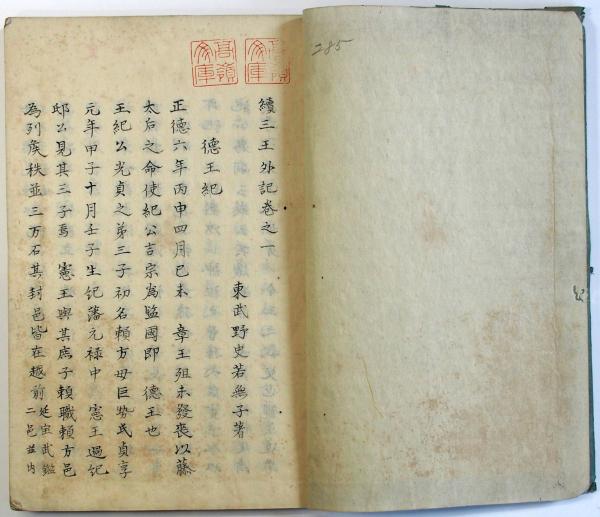 285
續三王外記卷之一
東武野史若無子著
德王紀
正德六年丙申四月己未 章王殂未發喪以藤
太后之命使紀公吉宗為監國即 德王也
王紀公光貞之第三子初名賴方母巨勢氏貞享
元年甲子十月壬子生紀藩元祿中 憲王過紀
邸公見其三子焉 憲王與其庶子賴職賴方邑
為列侯秩並三万石其封邑皆在越前延宝武鑑
二邑並内
高嶺文庫